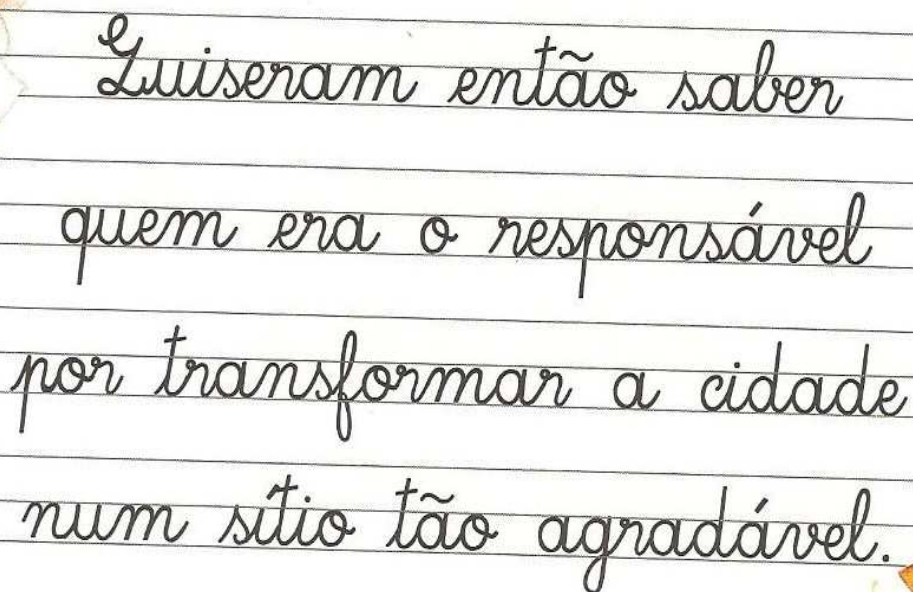 Quiseram então saber
quem era o responsável
por transformar a cidade
num sítio tão agradável.